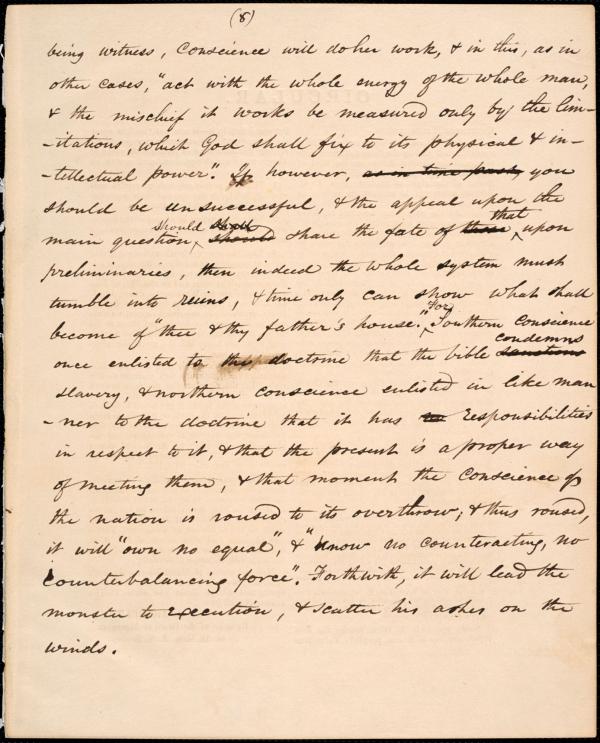 (8)
being witness, Conscience will do her work, & in this, as in
other cases, "act with the whole energy of the whole man,
& the mischief it works be measured only by the lim-
-itations, which God shall fix to its physical & in-
-tellectual power". If however, as in time past, you
should be unsuccessful, & the appeal upon the
main question, should share the fate of that upon
preliminaries, then indeed the whole system must
tumble into reuins, & time only can show what shall
become of "thee & thy father's house." For Southern Conscience
once enlisted to the doctrine that the bible condemns
slavery, & northern conscience enlisted in like man
-ner to the doctrine that it has responsibilities
in respect to it, & that the present is a proper way
of meeting them, & that moment the conscience of
the nation is roused to its overthrow; & thus roused,
it will "own no equal", & "know no counteracting, no
counterbalancing force". Forthwith, it will lead the
monster to execution, & scatter his ashes on the
winds.